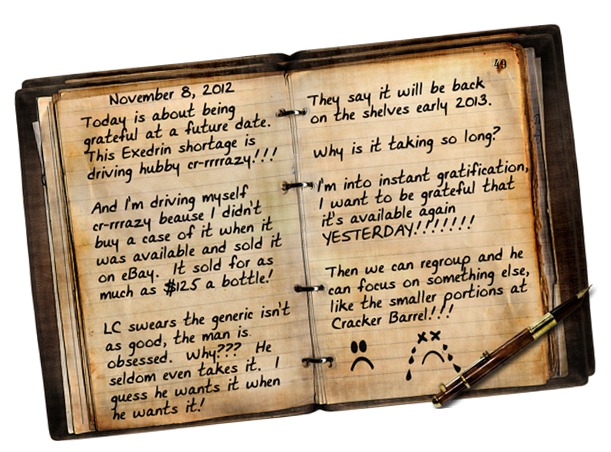 November 8, 2012
Today is about being
grateful at a future date.
This Exedrin shortage is
driving hubby cr-rrrrazy!!!
And I'm driving myself
cr-rrrazy beause I didn't
buy a case of it when it
was available and sold it
on eBay. It sold for as
much as $125 a bottle!
LC swears the generic isn't
as good, the man is
obsessed. Why??? He
seldom even takes it. I
guess he wants it when
he wants it!
49
They say it will be back
on the shelves early 2013.
Why is it taking so long?
I'm into instant gratification,
I want to be grateful that
it's available again
YESTERDAY!!!!!!!
Then we can regroup and he
can focus on something else,
like the smaller portions at
Cracker Barrel!!!